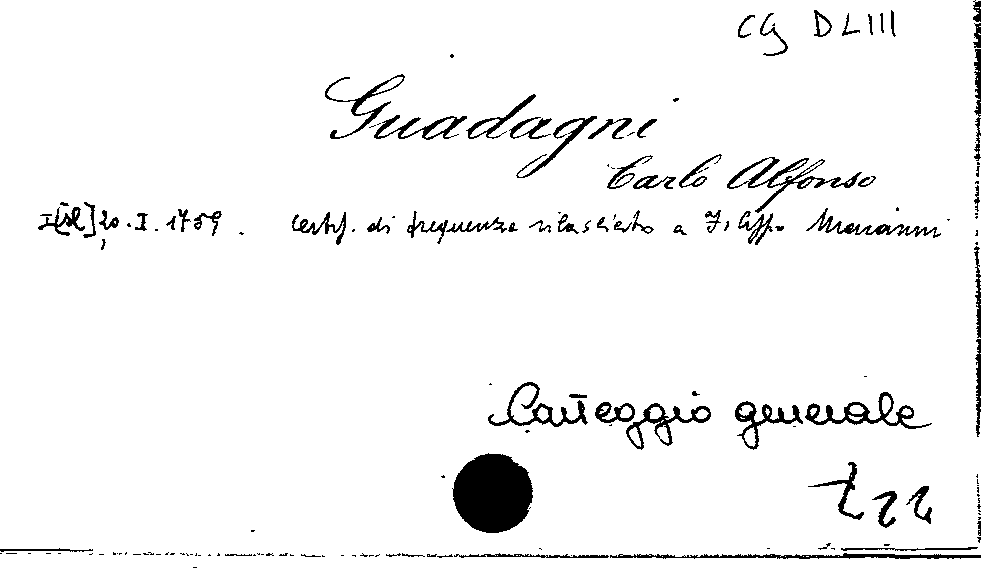 CG DLIII
Guadagni
Carlo Alfonso
I [sl], 20.I.1759. Certif. di frequenza rilasciato a Filippo Mariani
Carteggio generale